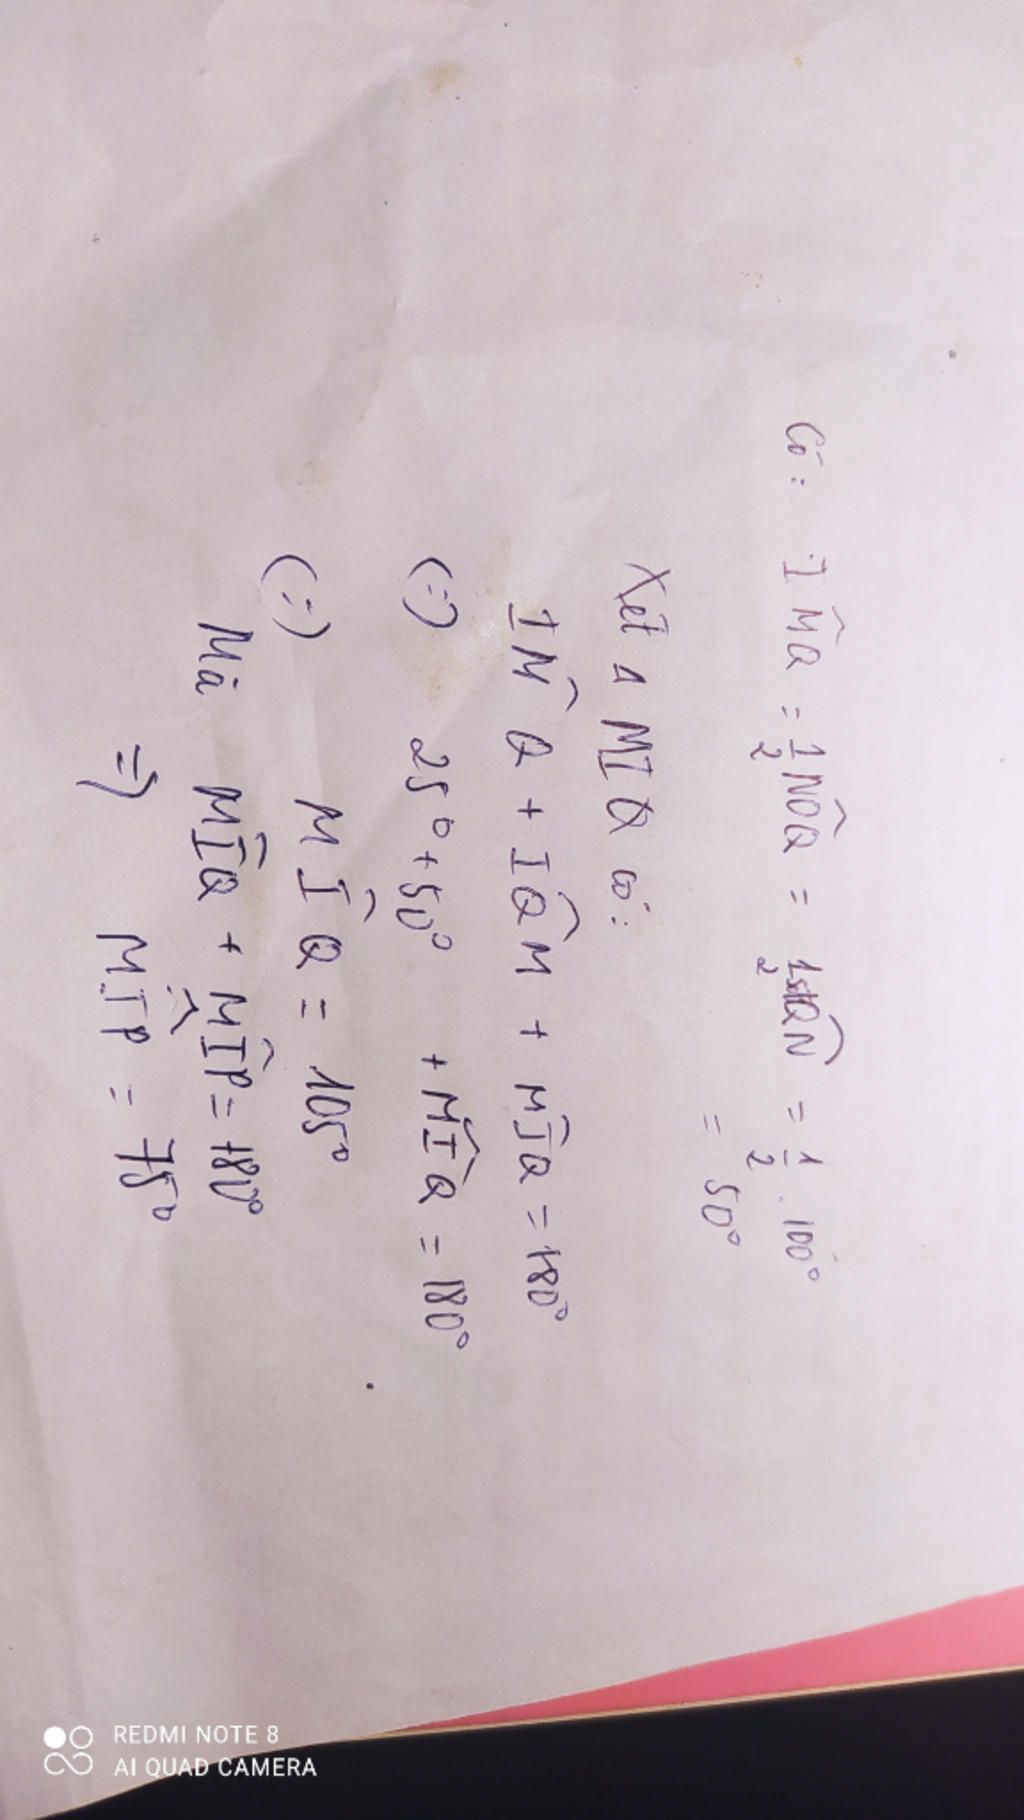 Có: IM̂Q = 1/2 NÔQ = 1/2 sđQN = 1/2 . 100°
= 50°
Xét Δ MIQ có:
IM̂Q + IQ̂M + MÎQ = 180°
(=) 25° + 50° + MÎQ = 180°
(=) MÎQ = 105°
Mà MÎQ + MÎP = 180°
=) MÎP = 75°
REDMI NOTE 8
AI QUAD CAMERA